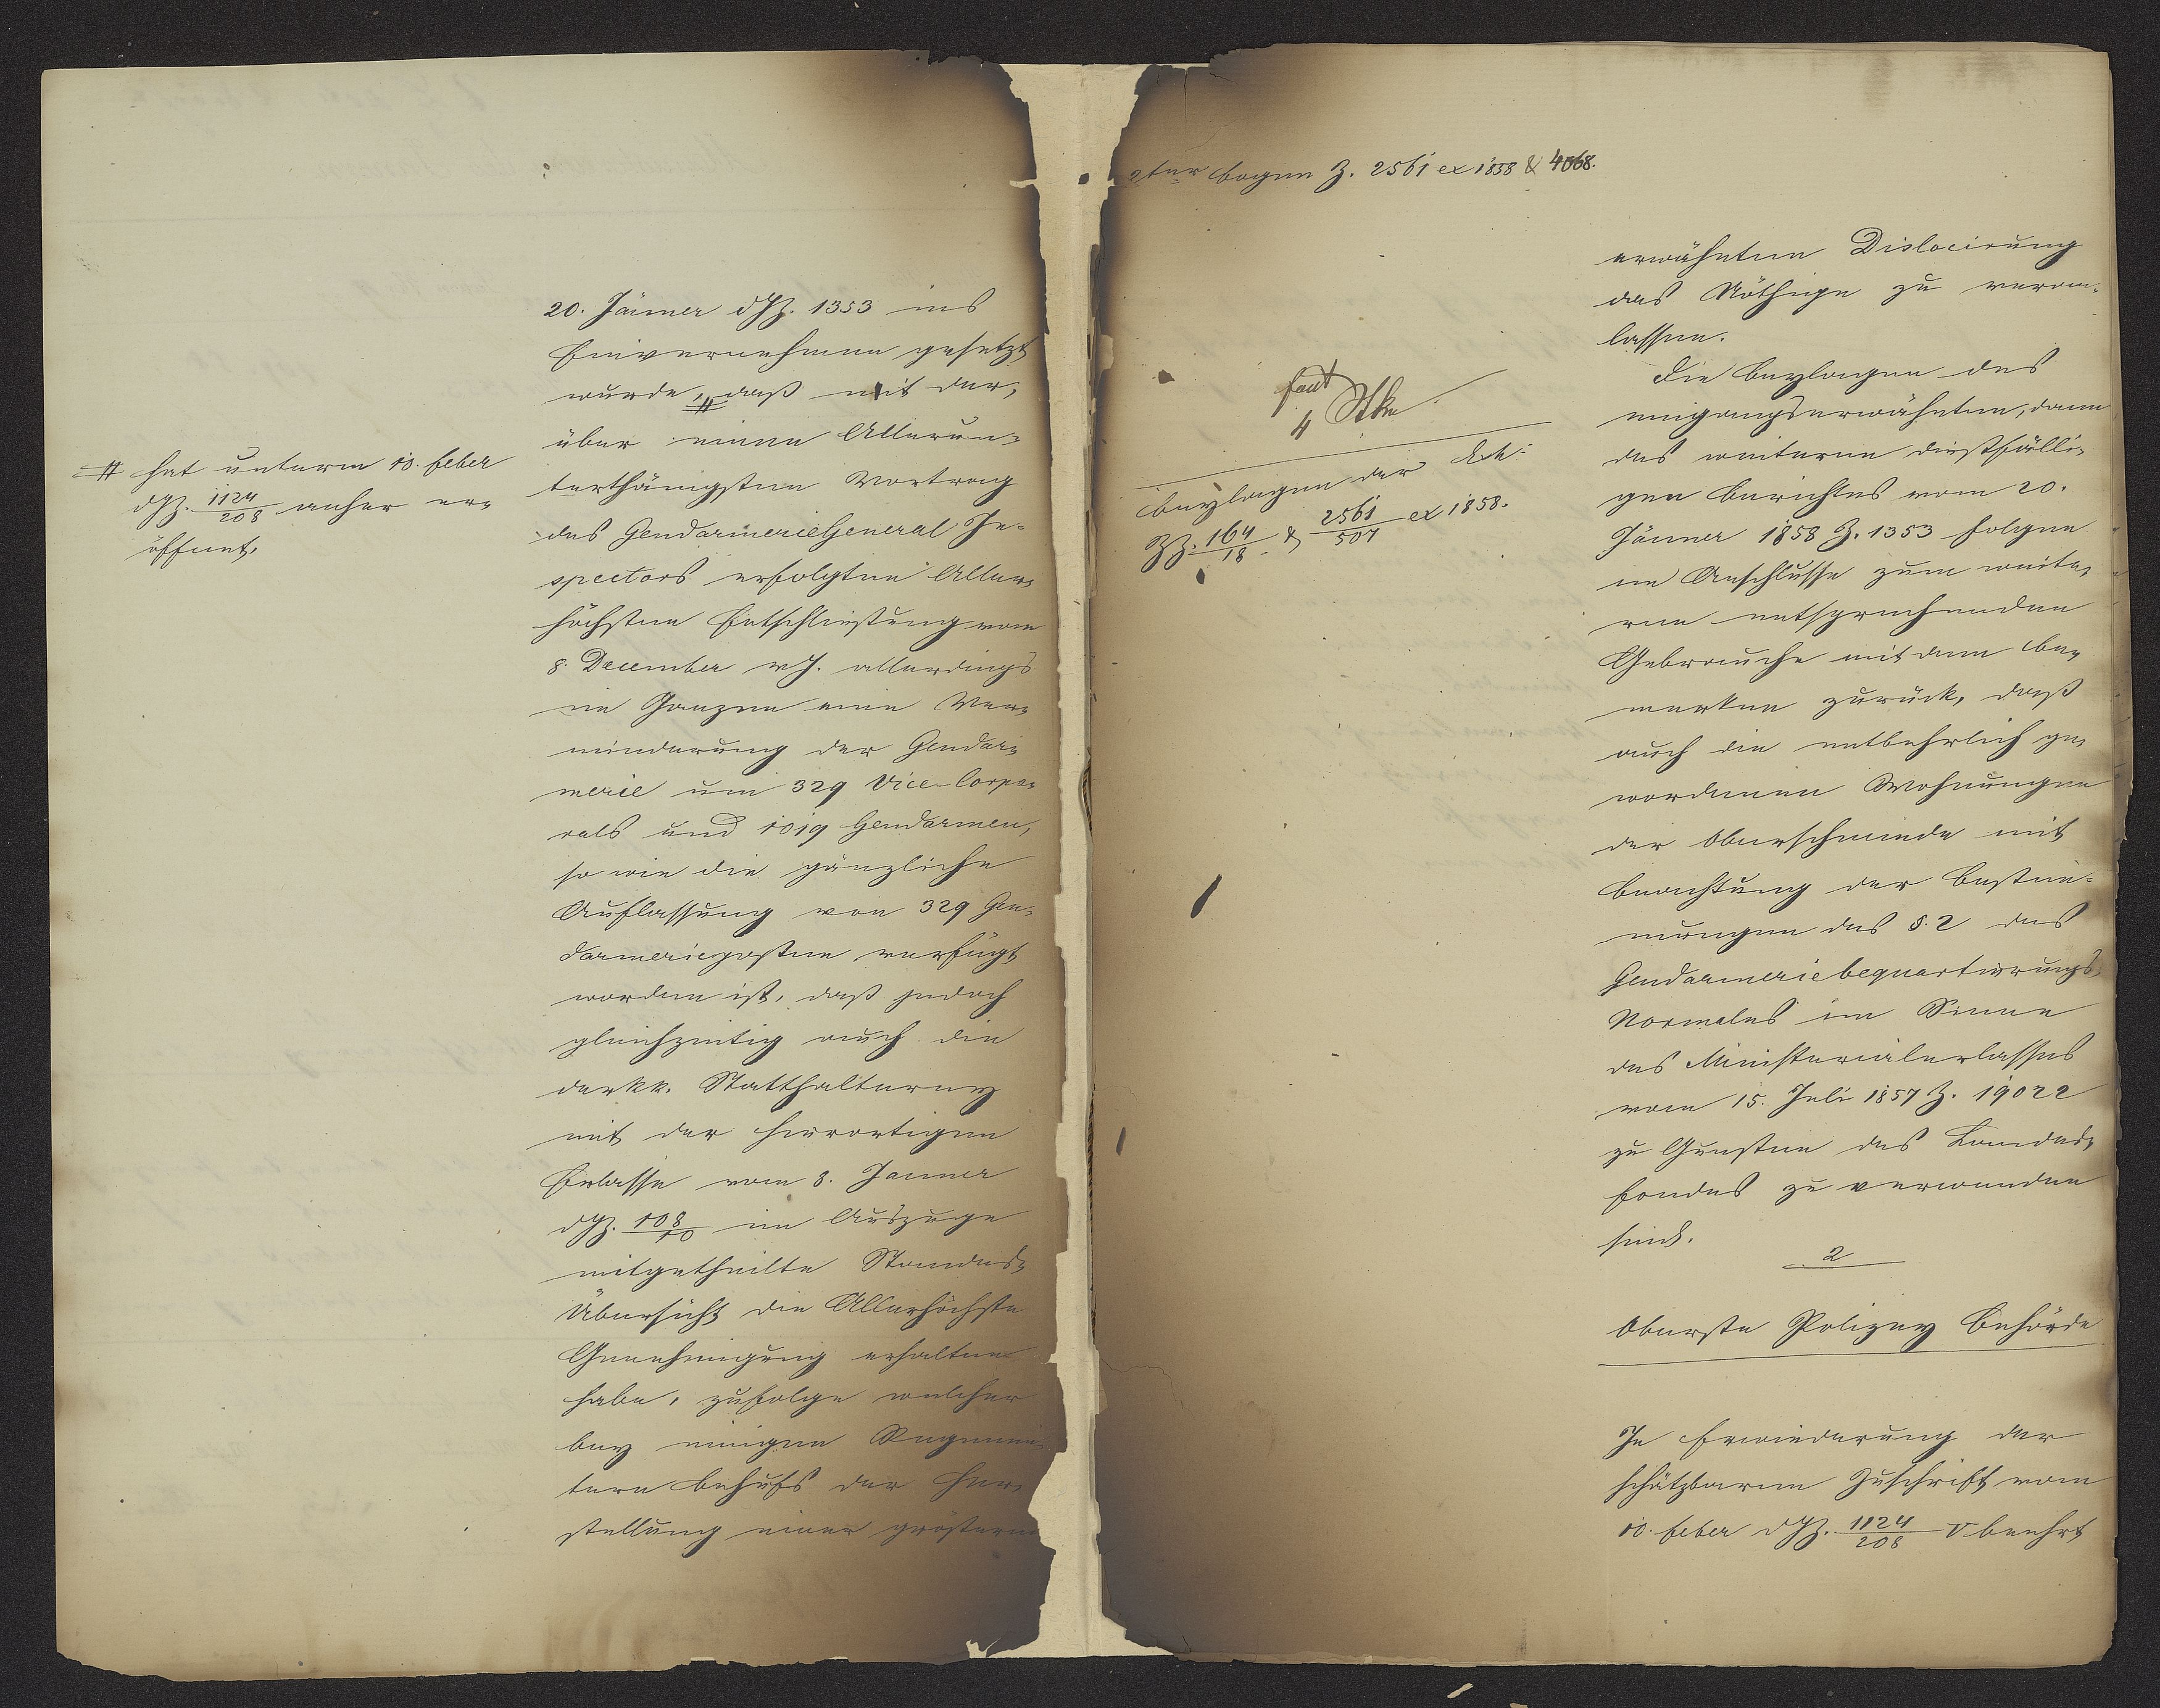 20. Jänner dJZ. 1353 ins
Einvernehmen gesetzt
wurde, # daß mit der,
über einen Allerun-
terthänigsten Vortrag
des Gendarmerie General In-
spectors erfolgten Aller-
höchsten Entschließung vom
8. December v.J. allerdings
im Ganzen eine Ver-
minderung der Gendar-
merie um 329 Vice-Corpo-
rals und 1019 Gendarmen,
so wie die gänzliche
Auflassung von 329 Gen-
darmerieposten verfügt
worden ist, daß jedoch
gleichzeitig auch die
der kk. Statthalterey
mit der hierortigen
Erlasse vom 8. Jänner
dJZ. 108/10 im Auszuge
mitgetheilte Standes-
Übersicht die Allerhöchste
Genehmigung erhalten
habe, zufolge welcher
bey einigen Regimen-
tern behufs der Her-
stellung einer größeren
# hat unterm 10. Feber
dJZ. 1124/208 anher er-
öffnet,
2ter Bogen Z. 2561 ex 1858 & 4068.
4 Stke
Beylagen der Exh:
ZZ. 164/18 & 2561/507 ex 1858.
erwähnten Dislocirung
das Nöthige zu veran-
lassen.
Die Beylagen des
eingangserwähnten, dann
des weiteren dießfälli-
gen Berichtes vom 20.
Jänner 1858 Z. 1353 folgen
im Anschlusse zum weite-
ren entsprechenden
Gebrauche mit dem Be-
merken zurück, daß
auch die entbehrlich ge-
wordenen Wohnungen
der Oberschmiede mit
Beachtung der Bestim-
mungen des §. 2 des
Gendarmeriebequartirungs-
Normales im Sinne
des Ministerialerlasses
vom 15. Juli 1857 Z. 19022
zu Gunsten des Landes-
fondes zu verwenden
sind.
2
Oberste Polizey Behörde
In Erwiederung der
schätzbaren Zuschrift vom
10. Feber dJZ. 1124/208 beehrt